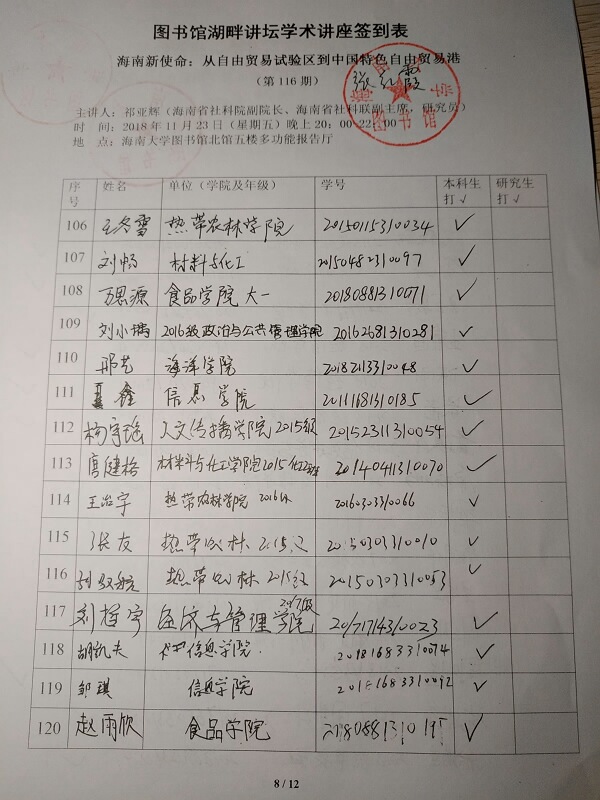 图书馆湖畔讲坛学术讲座签到表
海南新使命：从自由贸易试验区到中国特色自由贸易港
（第 116 期）
张红霞
图书馆
主讲人：祁亚辉（海南省社科院副院长、海南省社科联副主席，研究员）
时 间：2018 年 11 月 23 日（星期五）晚上 20：00-22：00
地 点：海南大学图书馆北馆五楼多功能报告厅
序号 姓名 单位（学院及年级） 学号 本科生打√ 研究生打√
106 王冬雪 热带农林学院 20150115310034 √
107 刘畅 材料与化工 20150482310097 √
108 思源 食品学院 大一 20180881310071 √
109 刘小瑞 2016级政治与公共管理学院 20162681310281 √
110 邢艺 海洋学院 20182133310048 √
111 鑫 信息学院 20111681310185 √
112 杨宇瑶 人文传播学院 2015级 20152311310054 √
113 唐健格 材料与化工学院2015化工班 20140411310070 √
114 王治宇 热带农林学院 2016级 20160303310066 √
115 张友 热带农林 2015级 20150303310010 √
116 航 热带农林 2015级 20150303310053 √
117 刘哲宇 经济与管理学院 2017级 20171714310023 √
118 胡凯夫 信息学院 20181683310074 √
119 邹琪 信息学院 20181683310092 √
120 赵雨欣 食品学院 √
8 / 12